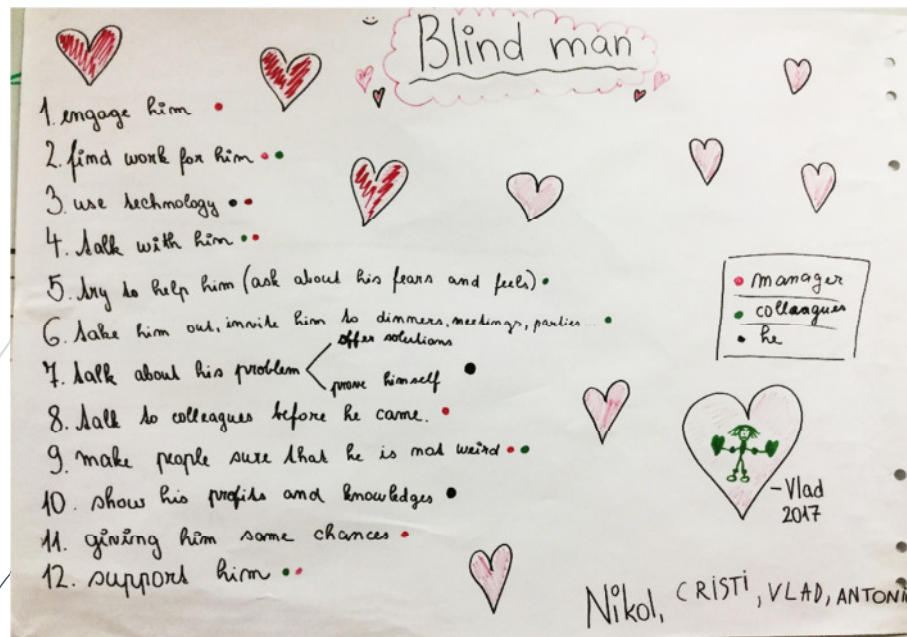 Blind man
1. engage him
2. find work for him
3. use technology
4. talk with him
5. try to help him (ask about his fears and feels)
6. take him out, invite him to dinners, meetings, parties...
offer solutions
7. talk about his problem
prove himself
8. talk to colleagues before he came.
9. make people sure that he is not weird
10. show his profits and knowledges
11. giving him some chances
12. support him
manager
colleagues
he
-Vlad
2017
Nikol, CRISTI, VLAD, ANTONI